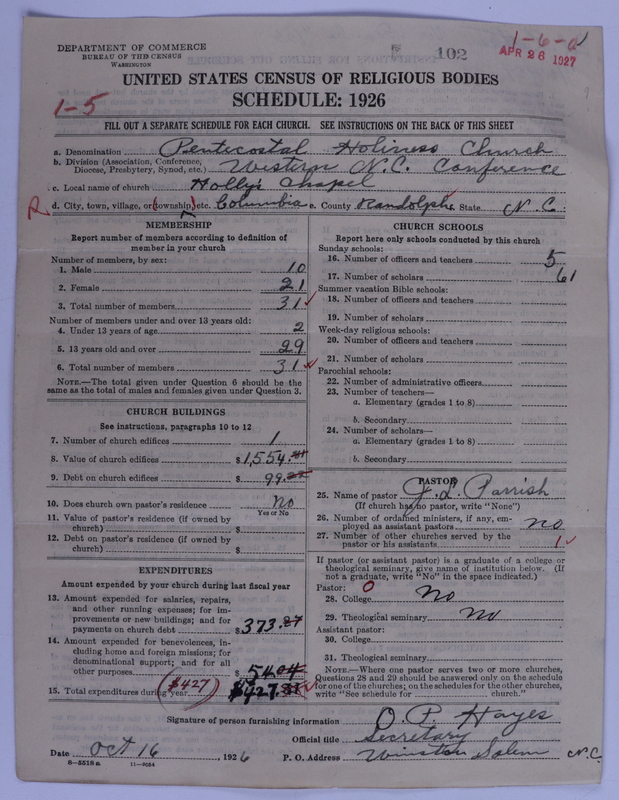 DEPARTMENT OF COMMERCE
BUREAU OF THE CENSUS
WASHINGTON
102
1-6-a
APR 26 1927
UNITED STATES CENSUS OF RELIGIOUS BODIES
SCHEDULE: 1926
1-5
FILL OUT A SEPARATE SCHEDULE FOR EACH CHURCH. SEE INSTRUCTIONS ON THE BACK OF THIS SHEET
a. Denomination Pentecostal Holiness Church
b. Division (Association, Conference, Diocese, Presbytery, Synod, etc.) Western N.C. Conference
c. Local name of church Holly's Chapel
R d. City, town, village, or (township) etc. Columbia e. County Randolph State N C
MEMBERSHIP
Report number of members according to definition of
member in your church
Number of members, by sex:
1. Male 10
2. Female 21
3. Total number of members 31
Number of members under and over 13 years old:
4. Under 13 years of age 2
5. 13 years old and over 29
6. Total number of members 31
NOTE.—The total given under Question 6 should be
same as the total of males and females given under Question 3.
CHURCH BUILDINGS
See instructions, paragraphs 10 to 12
7. Number of church edifices 1
8. Value of church edifices $1,554.
9. Debt on church edifices $ 99.
10. Does church own pastor's residence No
Yes or No
11. Value of pastor's residence (if owned by
church) $
12. Debt on pastor's residence (if owned by
church) $
EXPENDITURES
Amount expended by your church during last fiscal year
13. Amount expended for salaries, repairs,
and other running expenses; for im-
provements or new buildings; and for
payments on church debt $373.27
14. Amount expended for benevolences, in-
cluding home and foreign missions; for
denominational support; and for all
other purposes $ 54.04
15. Total expenditures during year ($427) $427.31
CHURCH SCHOOLS
Report here only schools conducted by this church
Sunday schools:
16. Number of officers and teachers 5
17. Number of scholars 61
Summer vacation Bible schools:
18. Number of officers and teachers
19. Number of scholars
Week-day religious schools:
20. Number of officers and teachers
21. Number of scholars
Parochial schools:
22. Number of administrative officers
23. Number of teachers—
a. Elementary (grades 1 to 8)
b. Secondary
24. Number of scholars—
a. Elementary (grades 1 to 8)
b. Secondary
PASTOR
25. Name of pastor J. L. Parrish
(If church has no pastor, write "None")
26. Number of ordained ministers, if any, em-
ployed as assistant pastors no
27. Number of other churches served by the
pastor or his assistants 1
If pastor (or assistant pastor) is a graduate of a college or
theological seminary, give name of institution below. (If
not a graduate, write "No" in the space indicated.)
Pastor: 0
28. College No
29. Theological seminary No
Assistant pastor:
30. College
31. Theological seminary
NOTE.—Where one pastor serves two or more churches,
Questions 28 and 29 should be answered only on the schedule
for one of the churches; on the schedules for the other churches,
write "See schedule for church."
Signature of person furnishing information O. P. Hayes
Official title Secretary
Date Oct 16, 1926 P. O. Address Winston Salem N.C.
8—5518a 11—9064